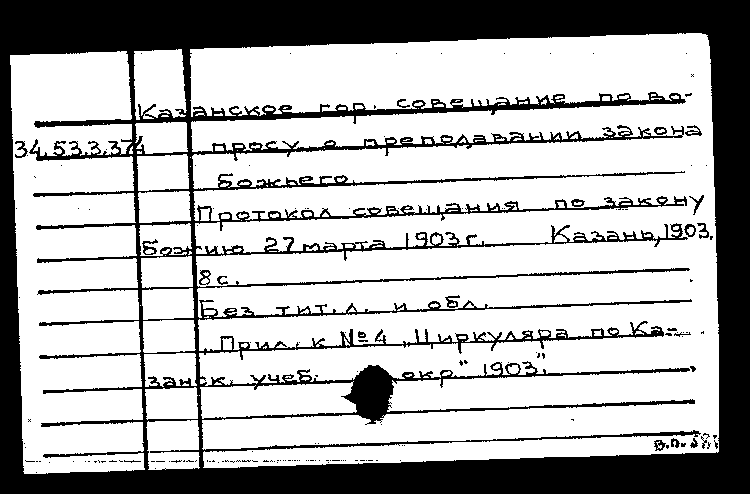 Казанское гор. совещание по во-
34.53.3.374 просу о преподавании закона
божьего.
Протокол совещания по закону
божию 27 марта 1903 г. Казань, 1903.
8 с.
Без тит. л. и обл.
„Прил. к № 4 „Циркуляра по Ка-
занск. учеб. окр." 1903".
В.П.